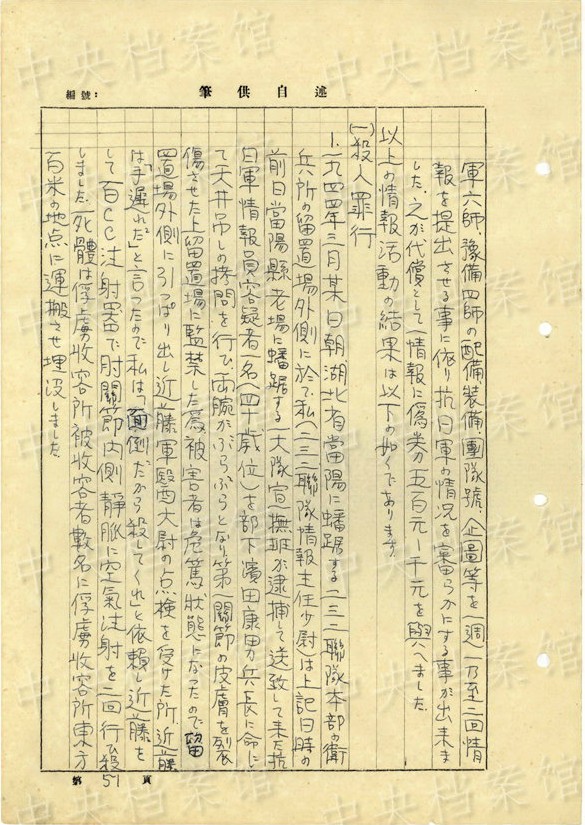 中央档案馆
編號：
筆供自述
軍六師、豫備四師の配備装備團隊號、企圖等を一週一乃至二回情
報を提出させる事に依り抗日軍の情況を審らかにする事が出来ま
した。之が代償として一情報に偽券五百元—千元を與へました。
以上の情報活動の結果は以下の如くであります。
(一)殺人罪行
1.一九四四年三月某日朝、湖北省當陽に蟠踞する二三二聯隊本部の衛
兵所の留置場外側に於て私(二三二聯隊情報主任少尉)は上記日時の
前日當陽縣老場に蟠踞する一大隊宣撫班が逮捕して送致して来た抗
日軍情報員容疑者一名(四十歳位)を部下濱田康男兵長に命じ
て天井吊しの拷問を行ひ、両腕がぶらぶらとなり第一関節の皮膚を裂
傷させた上留置場に監禁した為、被害者は危篤狀態になったので留
置場外側に引っぱり出し近藤軍醫大尉の点検を受けた所、近藤
は「手遅れだ」と言ったので私は、「面倒だから殺してくれ」と依頼し近藤を
して百CC注射器で肘關節内側静脈に空氣注射を二回行ひ殺
しました。死體は俘虜收容所被收容者數名に俘虜收容所東方
百米の地点に運搬させ埋沒しました。
第51頁